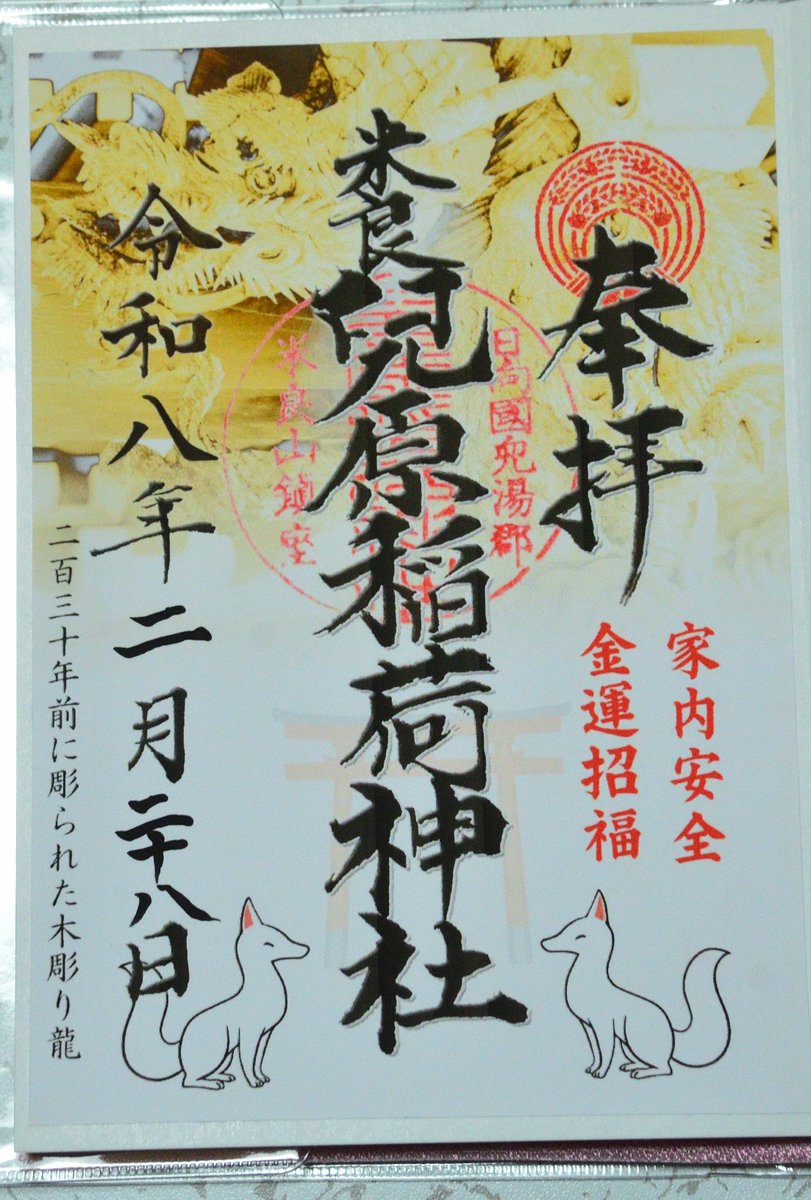 奉拝
家内安全
金運招福
日向國兒湯郡
米良兒原稲荷神社
米良山鎮座
令和八年二月二十八日
二百三十年前に彫られた木彫り龍